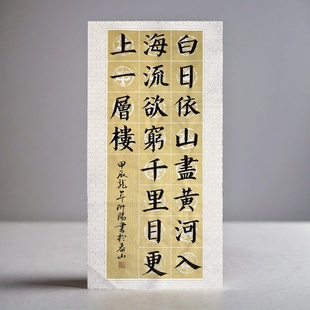 白日依山盡黃河入
海流欲窮千里目更
上一層樓
甲辰龍年
書於泰山